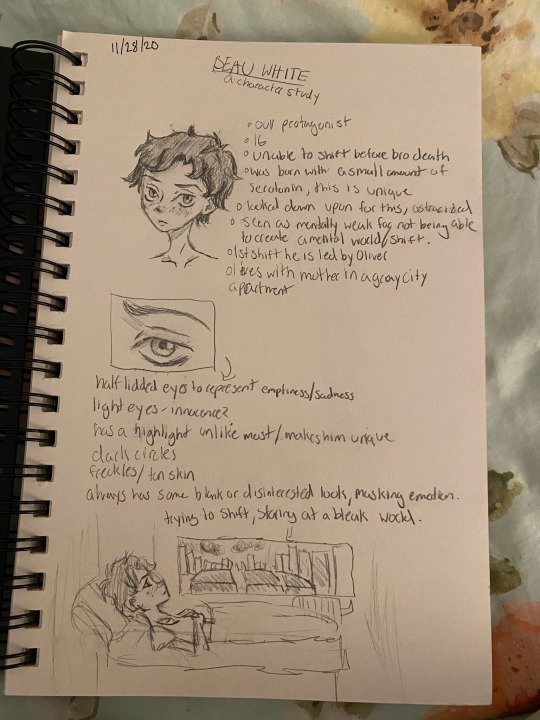 11/28/20
BEAU WHITE
a character study
◦ our protagonist
◦ 16
◦ unable to shift before bro death
◦ was born with a small amount of
serotonin, this is unique
◦ looked down upon for this, ostracized
◦ seen as mentally weak for not being able
to create a mental world/shift.
◦ 1st shift he is led by Oliver
◦ lives with mother in a gray city
apartment
half lidded eyes to represent emptiness/sadness
light eyes - innocence?
has a highlight unlike most/makes him unique
dark circles
freckles/tan skin
always has some blank or disinterested look, masking emotion.
trying to shift, staring at a bleak world.